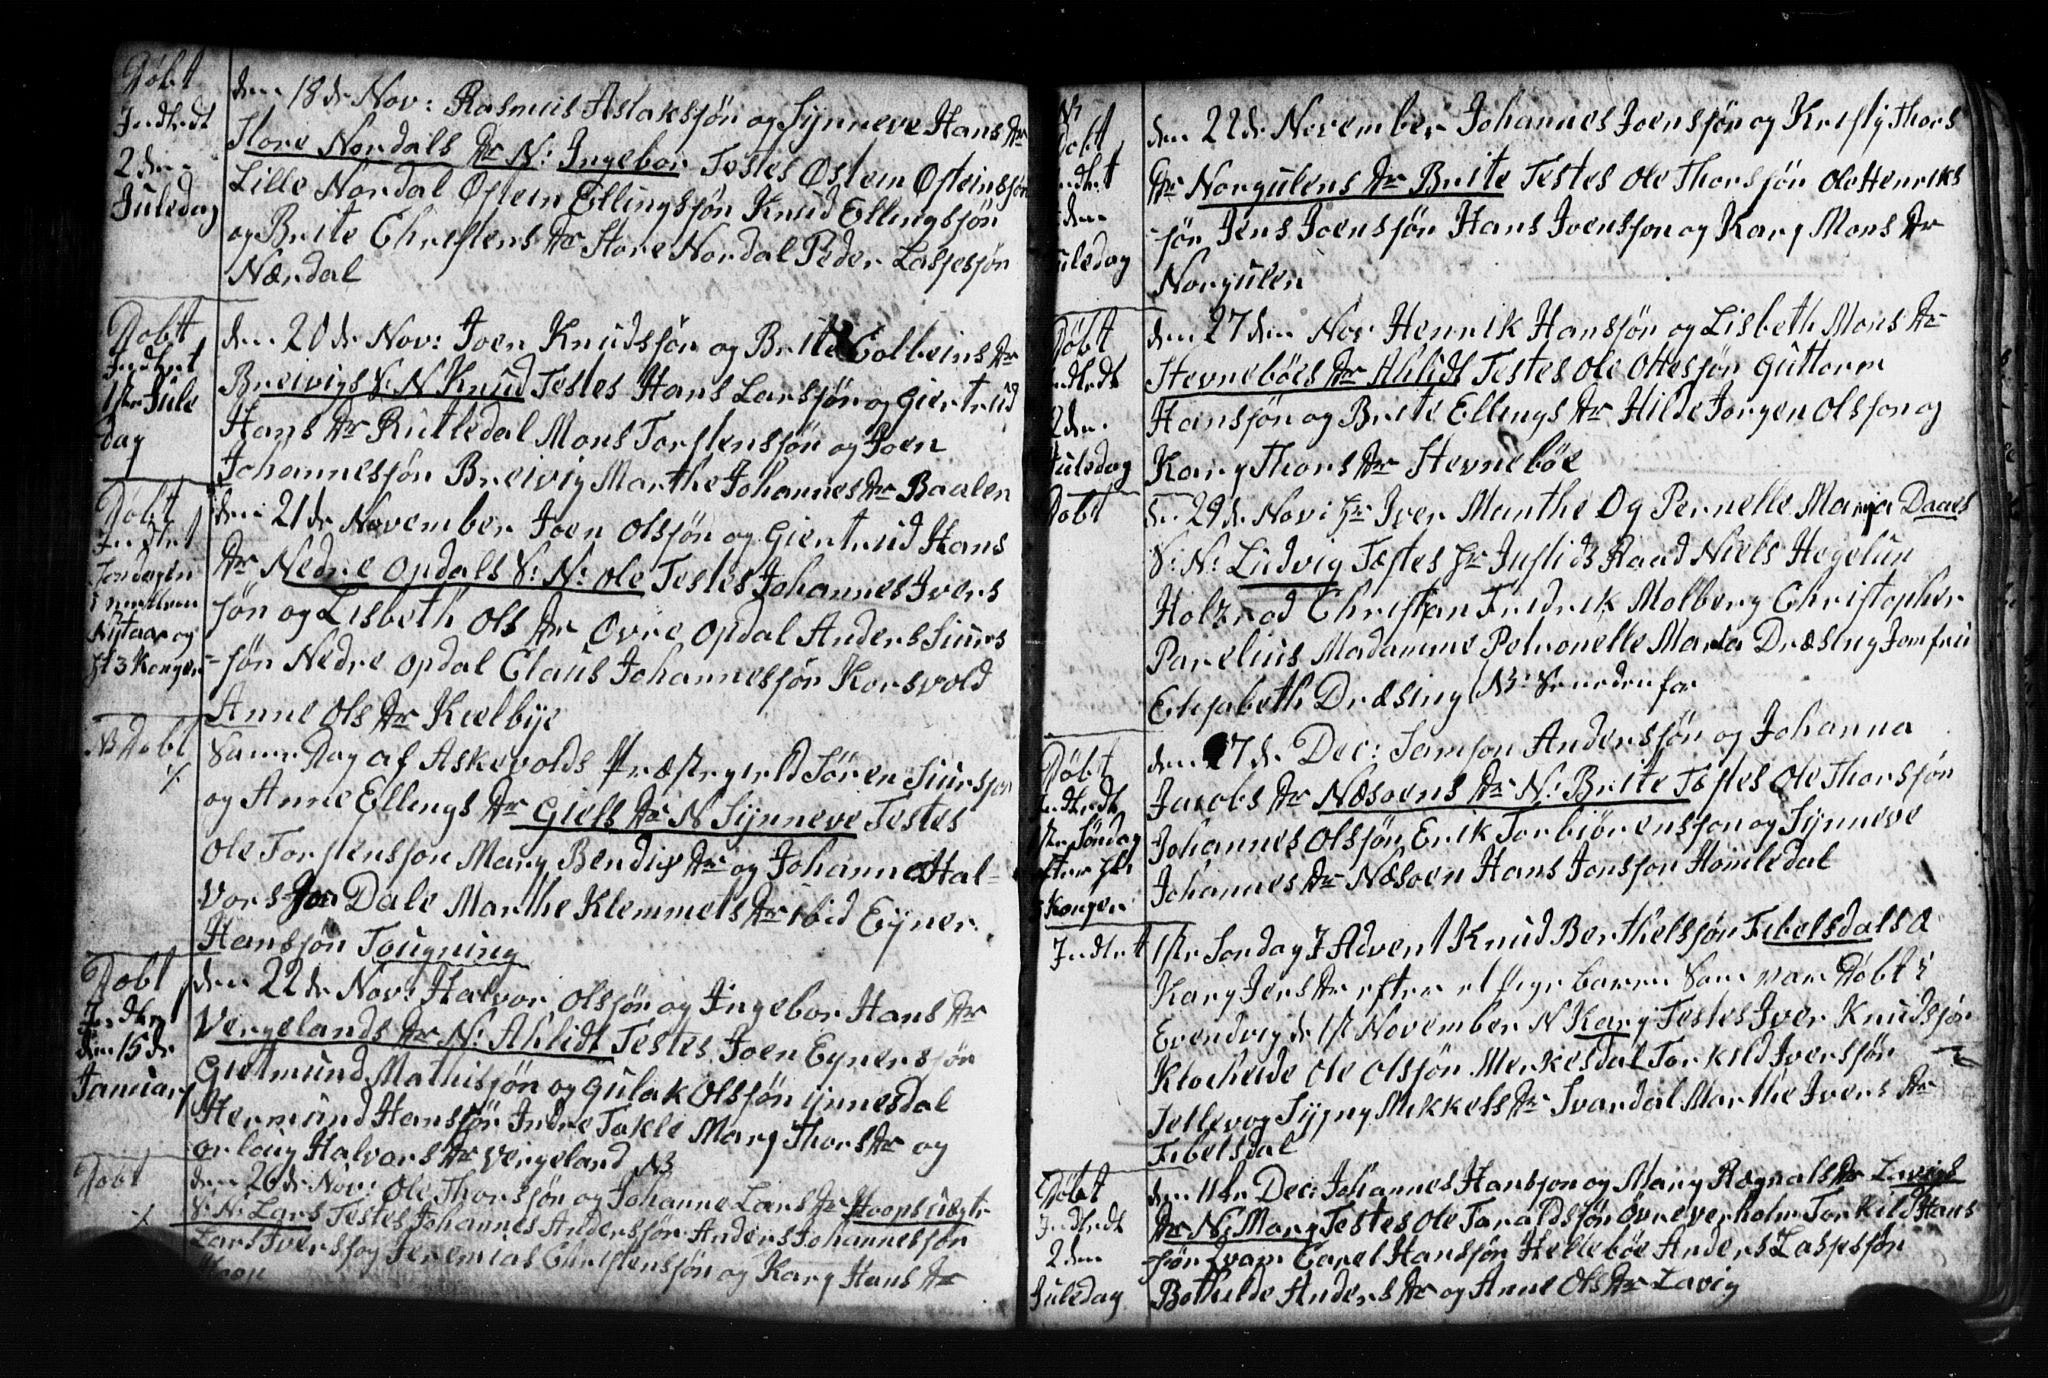 Døbt
Indledt
2den
Juledag
den 18de Nov: Rasmus Aslaksøn og Synneve Hans Dr
Store Nordals Dr N: Ingebor Testes Østein Østeinsøn
Lille Nordal Østein Ellingsøn Knud Ellingsøn
og Brite Christens Dr Store Nordal Peder Lassesøn
Nærdal
Døbt
Indledt
1ste Jule
dag
den 20de Nov: Joen Knudsøn og Brite Colbeins Dr
Breivigs S: N Knud Testes Hans Larsøn og Giertrud
Hans Dr Rutledal Mons Torstensøn og Joen
Johannesøn Breivig Marthe Johannes Dr Baalen
Døbt
Indledt
Søndagen
imellem
Nytaar og
H 3 Konger
den 21de November Joen Olsøn og Giertrud Hans
Dr Nedre Opdals S: N: Ole Testes Johannes Ivers
søn og Lisbeth Ols Dr Ovre Opdal Anders Siurs
søn Nedre Opdal Claus Johannessøn Korsvold
Anne Ols Dr Kielbye
NB Døbt
Same Dag af Askevolds Præstegield Søren Siursøn
og Anne Ellings Dr Giels Dr N Synneve Testes
Ole Torstensøn Mary Bendix Dr og Johanne Hal-
vors Dr Dale Marthe Klemmets Dr ibid Eyner
Hansøn Tougning
Døbt
Indledt
den 15de
January
den 22de Nov: Halvor Olsøn og Ingebor Hans Dr
Vergelands Dr N: Ahlidt Testes Joen Eynersøn
Gietmund Mathisøn og Gulak Olsøn ynnesdal
Hermund Hansøn Indre Takle Mary Thors Dr og
orlaug Halvors Dr Vergeland NB
Døbt
den 26de Nov: Ole Thorsøn og Johanne Lars Dr Hoops
S: N: Lars Testes Johannes Andersøn Anders Johannesøn
Lars Iversøn Jeremias Christensøn og Kary Hans Dr
Hoop
NB
Døbt
Indledt
2den
Juledag
den 22de November Johannes Joensøn og Kristy Thors
Dr Norgulens Dr Brite Testes Ole Thorsøn Ole Henriks
søn Jens Joensøn Hans Joensøn og Kary Mons Dr
Norgulen
Døbt
Indledt
2den
Juledag
den 27den Nov Henrik Hansøn og Lisbeth Mons Dr
Stevnebøes Dr Ahlidt Testes Ole Ottesøn Guttorm
Hansøn og Brite Ellings Dr Hilde Jørgen Olsøn og
Kary Thors Dr Stevnebøe
Døbt
den 29de Nov: Hr Iver Munthe Og Pernelle Maria Daaes
S: N: Ludvig Testes Hr Justis Raad Niels Hegelun
Holz og Christian Fridrik Molberg Christopher
Parelius Madamme Petronelle Maria Dræsing Jomfru
Elisabeth Dræsing NB: Se nedenfor
Døbt
Indledt
1ste Søndag
efter H
3 Konger
den 7de Dec: Samson Andersøn og Johanna
Jacobs Dr Næsøens Dr N: Brite Testes Ole Thorsøn
Johannes Olsøn Erik Torbiørensøn og Synneve
Johannes Dr Næsøen Hans Jonsøn Homledal
Indledt
1ste Søndag I Advent Knud Berthelsøn Fibelsdals
Kary Jens Dr efter et Pigebarn Som var Døbt i
Evendvig de 1ste November N Kary Testes Iver Knudsøn
Klocheide Ole Olsøn Merkesdal Torkild Iversøn
Tellev og Sygny Mikkels Dr Svardal Marthe Ivers Dr
Fibelsdal
Døbt
Indledt
2den
Juledag
den 11te Dec: Johannes Hansøn og Mary Rægnals Dr Lavigs
Dr N: Mary Testes Ole Taraldsøn Øvreverholm Torkild Hans
søn Carel Hansøn Hellebøe Anders Lassesøn
Bothilde Anders Dr og Anne Ols Dr Lavig